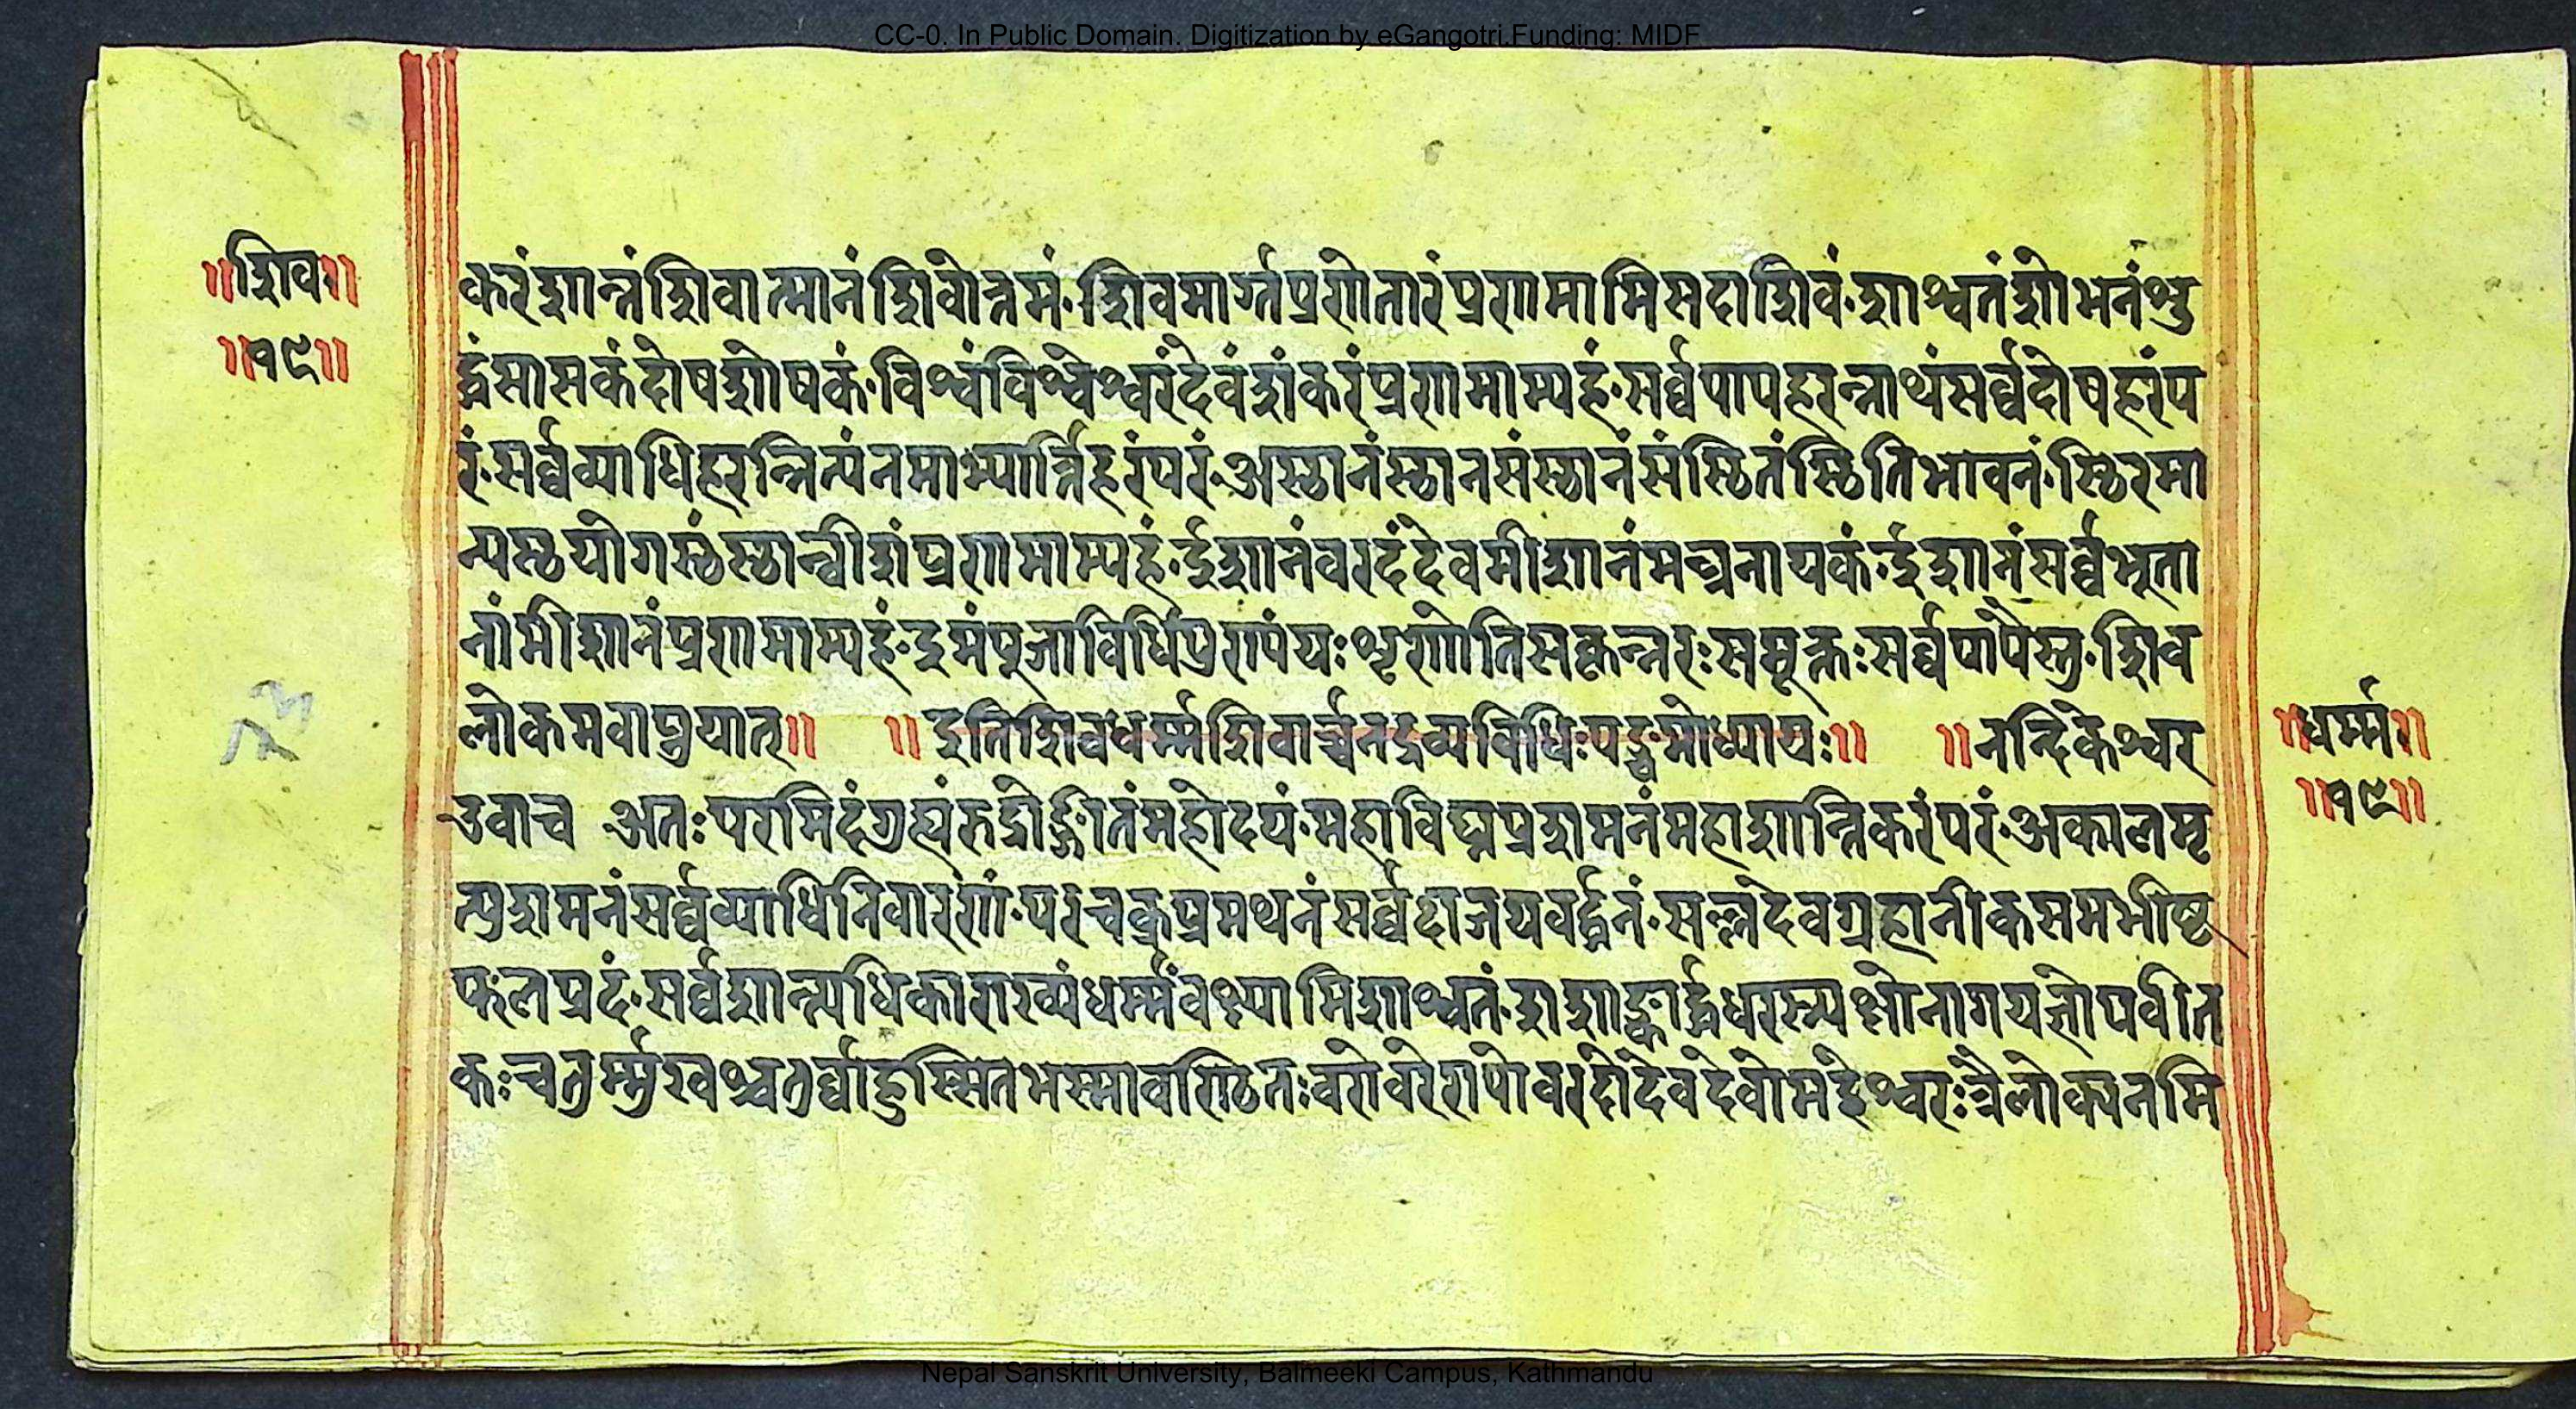 CC-0. In Public Domain. Digitization by eGangotri.Funding: MIDF
॥शिव॥
॥१९॥
करंशान्तंशिवात्मानंशिवोत्तमं·शिवमार्ग्गप्रणेतारंप्रणमामिसदाशिवं·शाश्वतंशोभनंशु
द्धंसासकंदोषशोषकं·विश्वंविश्वेश्वरंदेवंशंकरंप्रणमाम्यहं·सर्व्वपापहरन्नाथंसर्व्वदोषहरंप
रं·सर्व्वव्याधिहरन्नित्यंनमाभ्यार्त्तिहरंपरं·अस्थानंस्थानसंस्थानंसंस्थितंस्थितिभावनं·स्थिरमा
न्यस्थयोगस्थंस्थान्वीशंप्रणमाम्यहं·ईशानंवरदंदेवमीशानंमन्त्रनायकं·ईशानंसर्व्वभूता
नांमीशानंप्रणमाम्यहं·इमंपूजाविधिंपुण्यंयःशृणोतिसकृन्नरःसमुक्तःसर्व्वपापैस्तु·शिव
लोकमवाप्नुयात्॥ ॥इतिशिवधर्म्मशिवार्च्चनद्रव्यविधिःपञ्चमोध्यायः॥ ॥नन्दिकेश्वर
उवाच अतःपरमिदंगुह्यंरुद्रोद्गीतंमहोदयं·महाविघ्नप्रशमनंमहाशान्तिकरंपरं·अकालमृ
त्युशमनंसर्व्वव्याधिनिवारणं·परचक्रप्रमथनंसर्व्वदाजयवर्द्धनं·सर्व्वदेवग्रहानीकसमभीष्ट
फलप्रदं·सर्व्वशान्त्यधिकाराख्यंधर्म्मंवक्ष्यामिशाश्वतं·शशाङ्कार्द्धधरस्त्र्यक्षोनागयज्ञोपवीत
कःचतुर्म्मुखश्चतुर्ब्बाहुस्सितभस्मावगुण्ठितःवरोवरेण्योवरदोदेवदेवोमहेश्वरःत्रैलोक्यनमि
॥धर्म्म॥
॥१९॥
Nepal Sanskrit University, Balmeeki Campus, Kathmandu